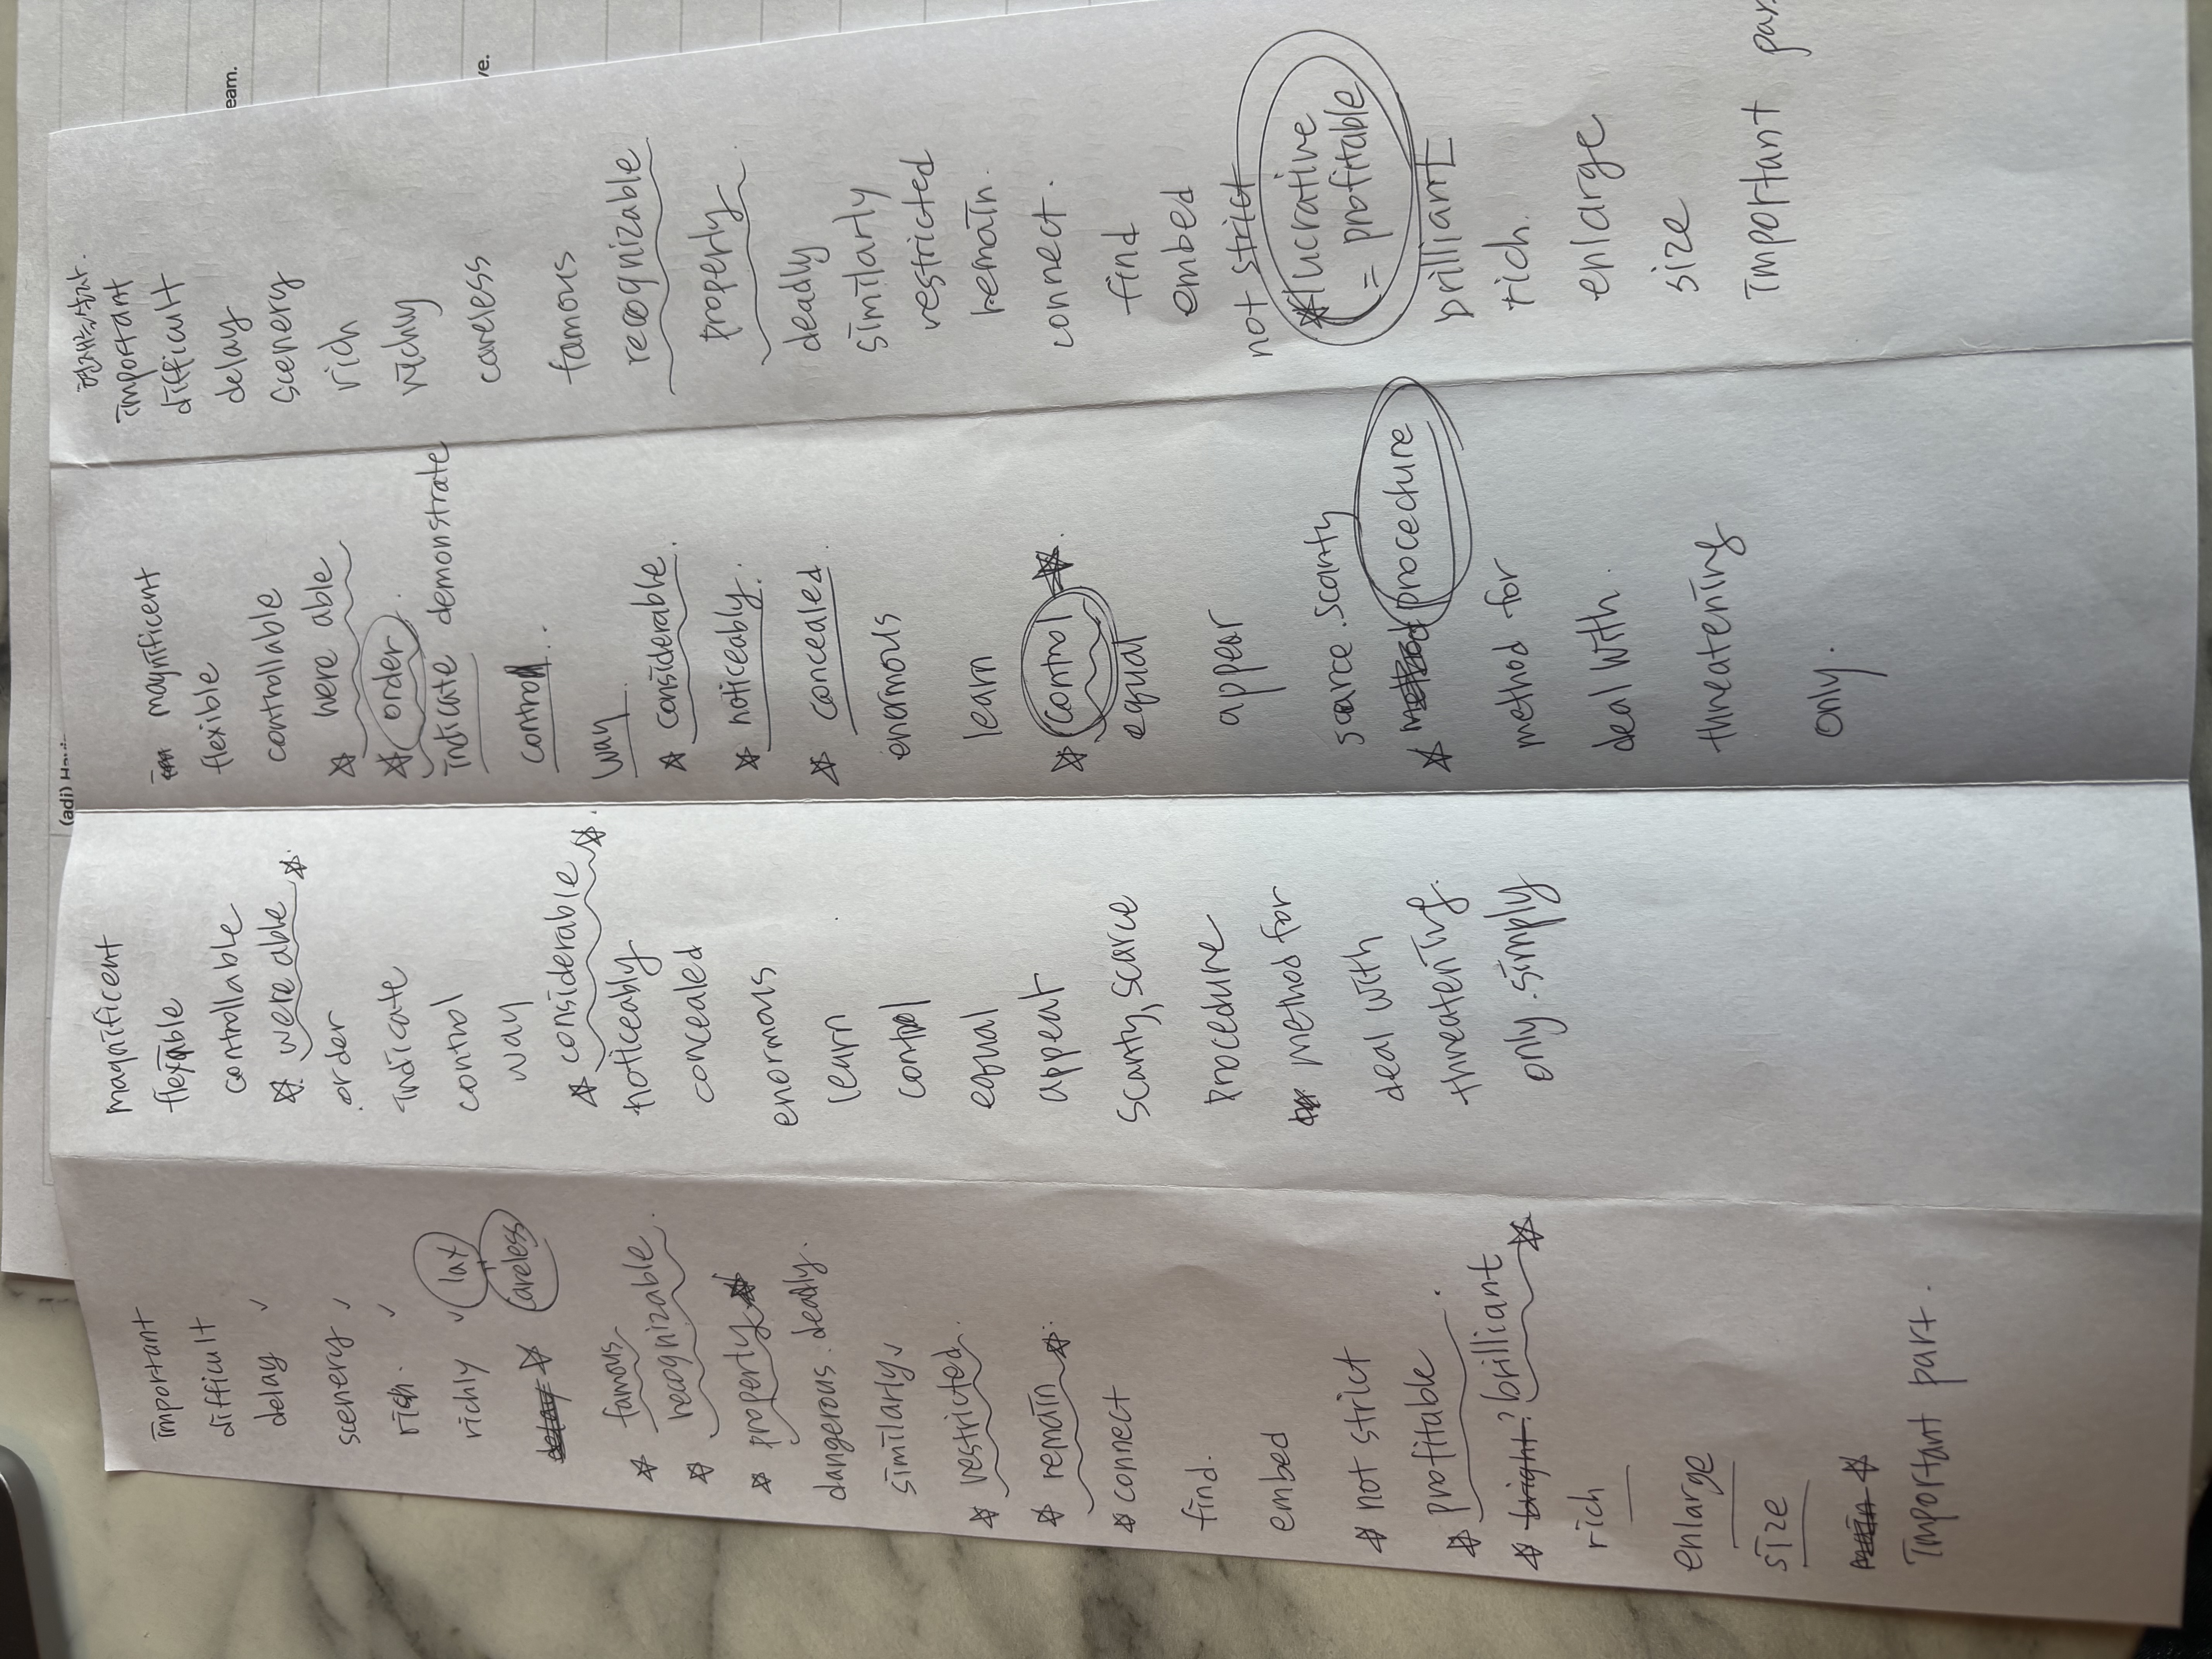 important
difficult
delay ✓
scenery ✓
rich. ✓
richly ✓ lax
careless
☆ famous
☆ recognizable.
☆ properly ☆
dangerous. deadly.
similarly ✓
☆ restricted.
☆ remain ☆.
☆ connect
find.
embed
☆ not strict
☆ profitable.
☆ bright? brilliant ☆
rich
enlarge
size
☆
Important part.
magnificent
flexible
controllable
☆. were able ☆.
. order
indicate
control
way
☆ considerable ☆.
noticeably
concealed
enormous
learn
control
equal
appear
scanty, scarce
procedure
method for
deal with
threatening.
only. simply
magnificent
flexible
controllable
☆ were able
☆ order.
indicate demonstrate
control.
way
☆ considerable.
☆ noticeably.
☆ concealed.
enormous
learn
☆ control ☆.
equal
appear
scarce. scanty
☆ method procedure
method for
deal with.
threatening
only.
important
difficult
delay
scenery
rich
richly
careless
famous
recognizable
properly.
deadly
similarly
restricted
remain.
connect.
find
embed
not strict
☆ lucrative
= profitable
brilliant
rich.
enlarge
size
Important par
eam.
ve.
(adj)